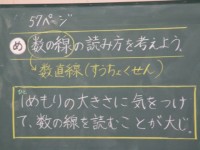 57ページ
め 数の線の読み方を考えよう。
数直線(すうちょくせん)
1めもりの大きさに気をつけ
て、数の線を読むことが大じ。